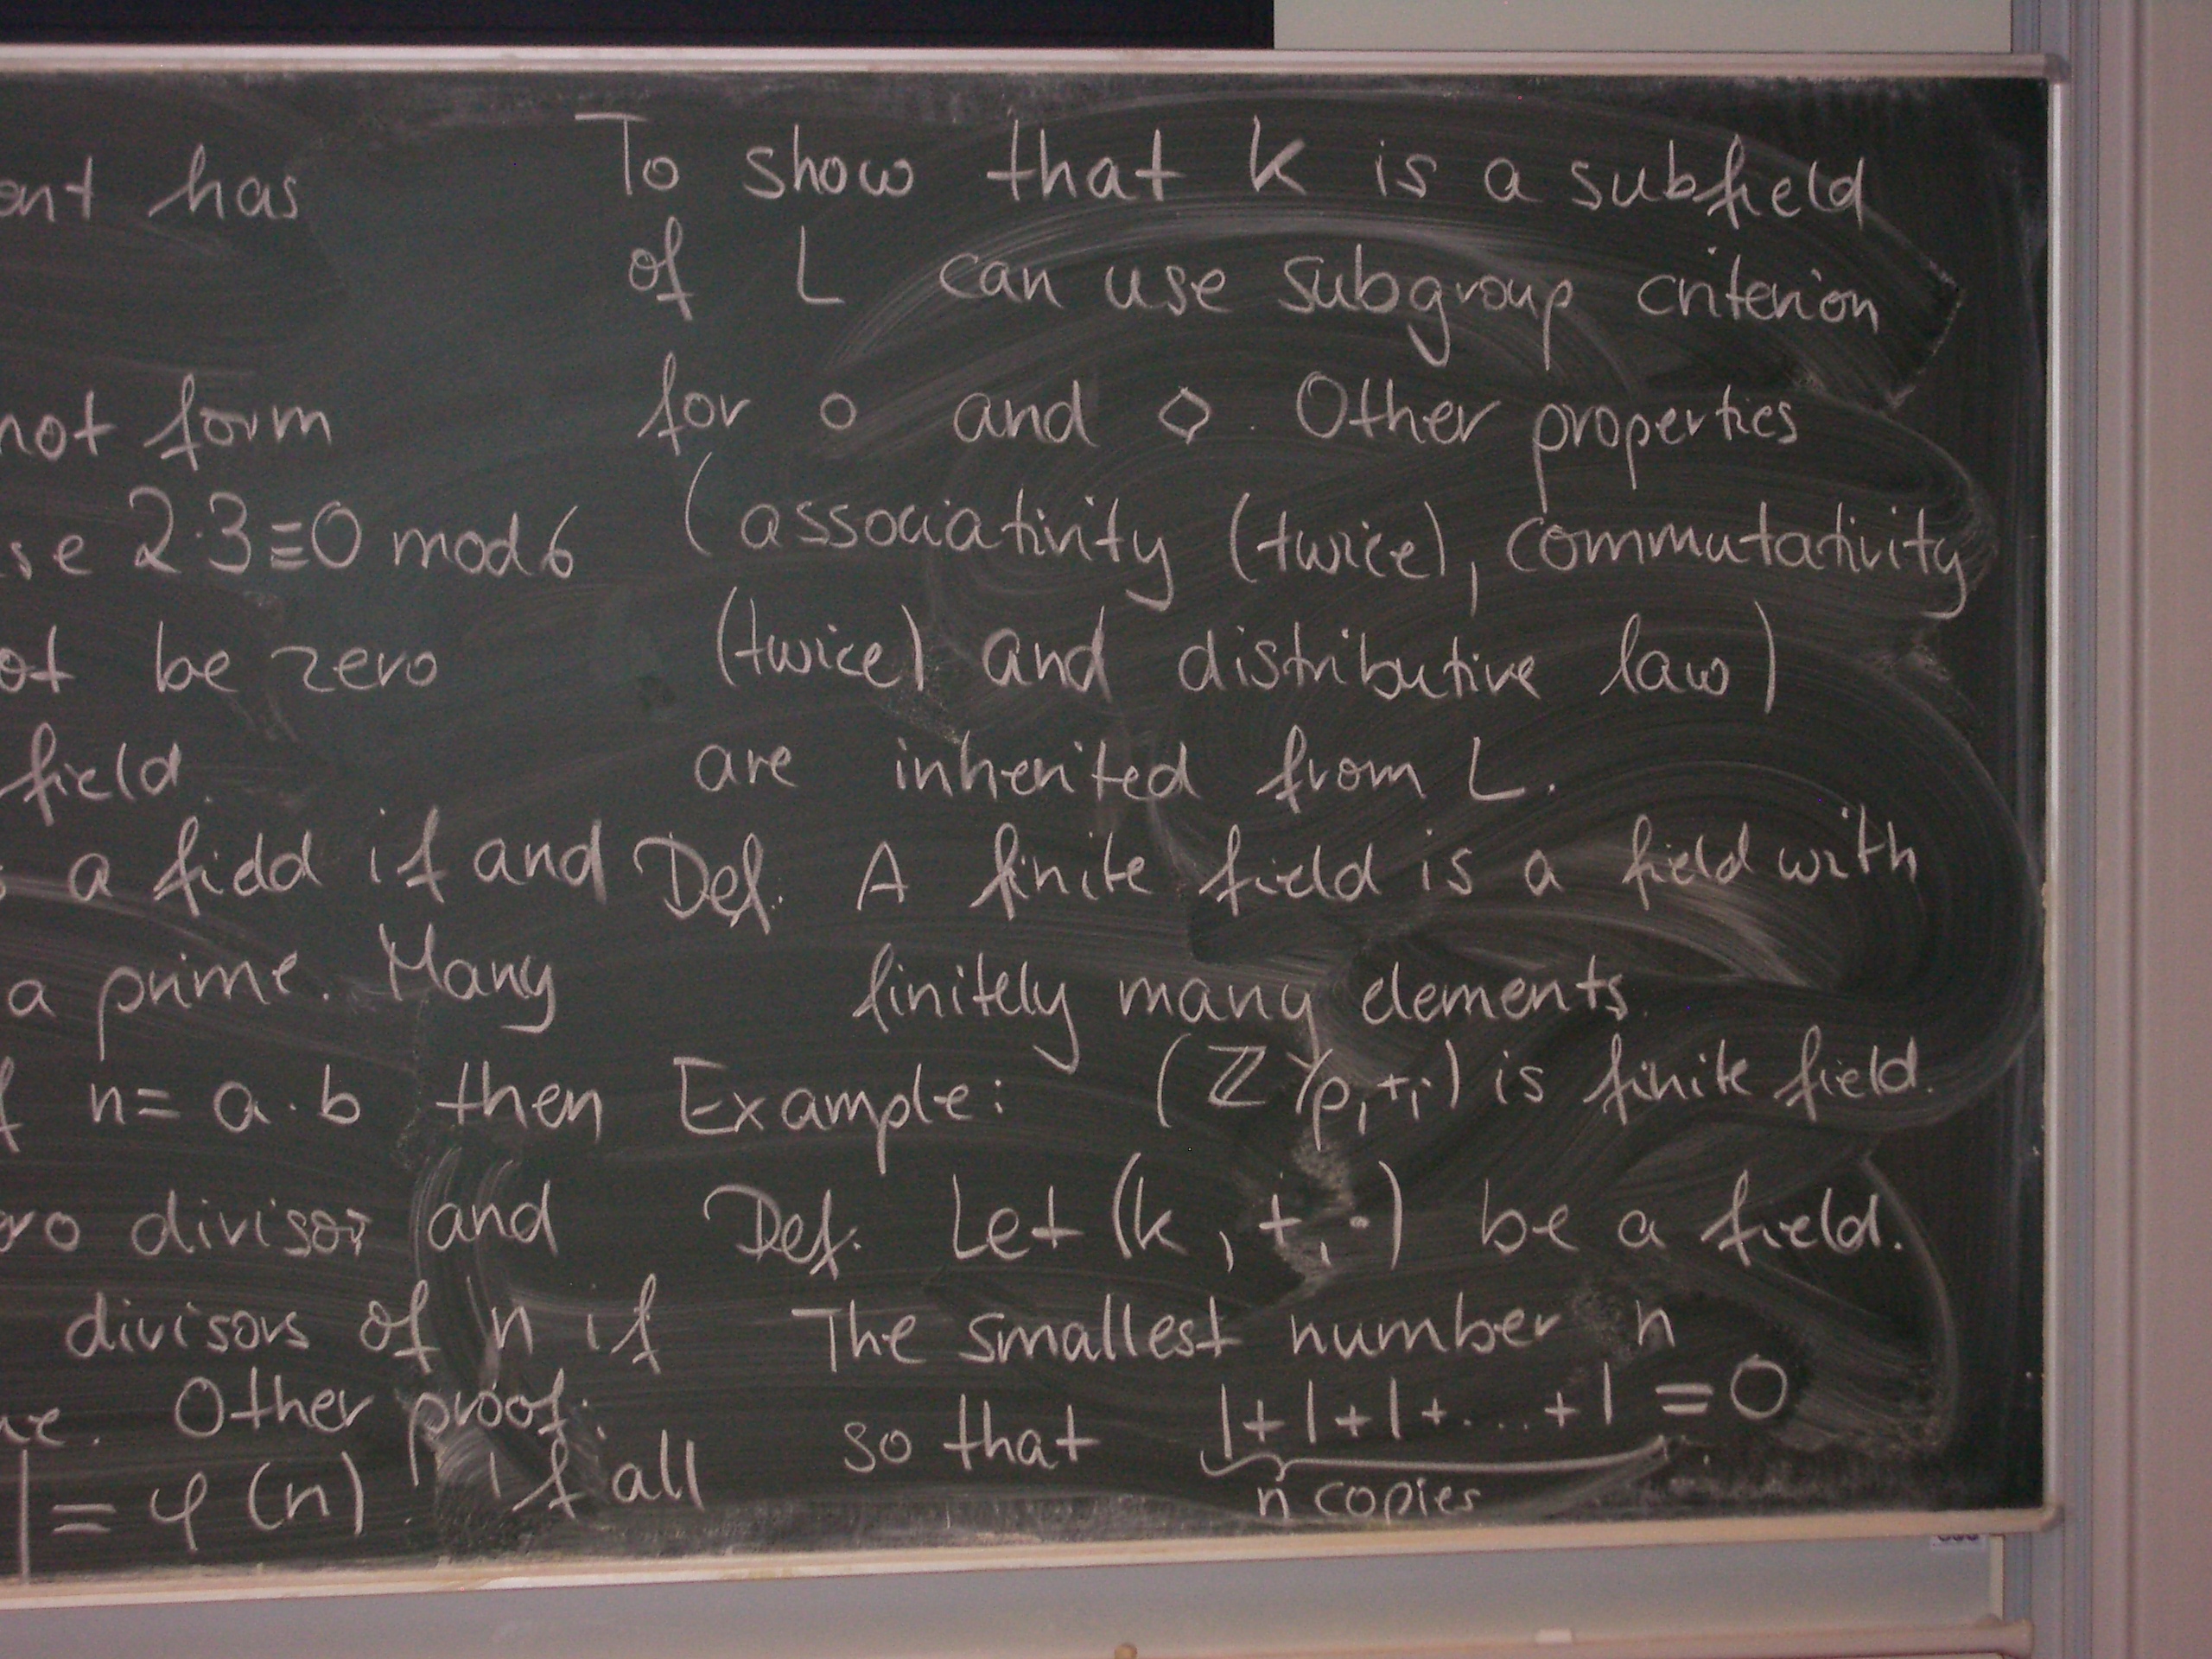 has
not form
2·3≡0 mod 6
be zero
field.
a field if and
a prime. Many
n = a·b then
divisor and
divisors of n if
Other proof:
= φ(n). If all
To show that K is a subfield
of L can use subgroup criterion
for ∘ and ◇. Other properties
(associativity (twice), commutativity
(twice) and distributive law)
are inherited from L.
Def. A finite field is a field with
finitely many elements.
Example: (ℤ/p, +, ·) is finite field.
Def. Let (K, +, ·) be a field.
The smallest number n
so that 1+1+1+...+1 = 0
n copies